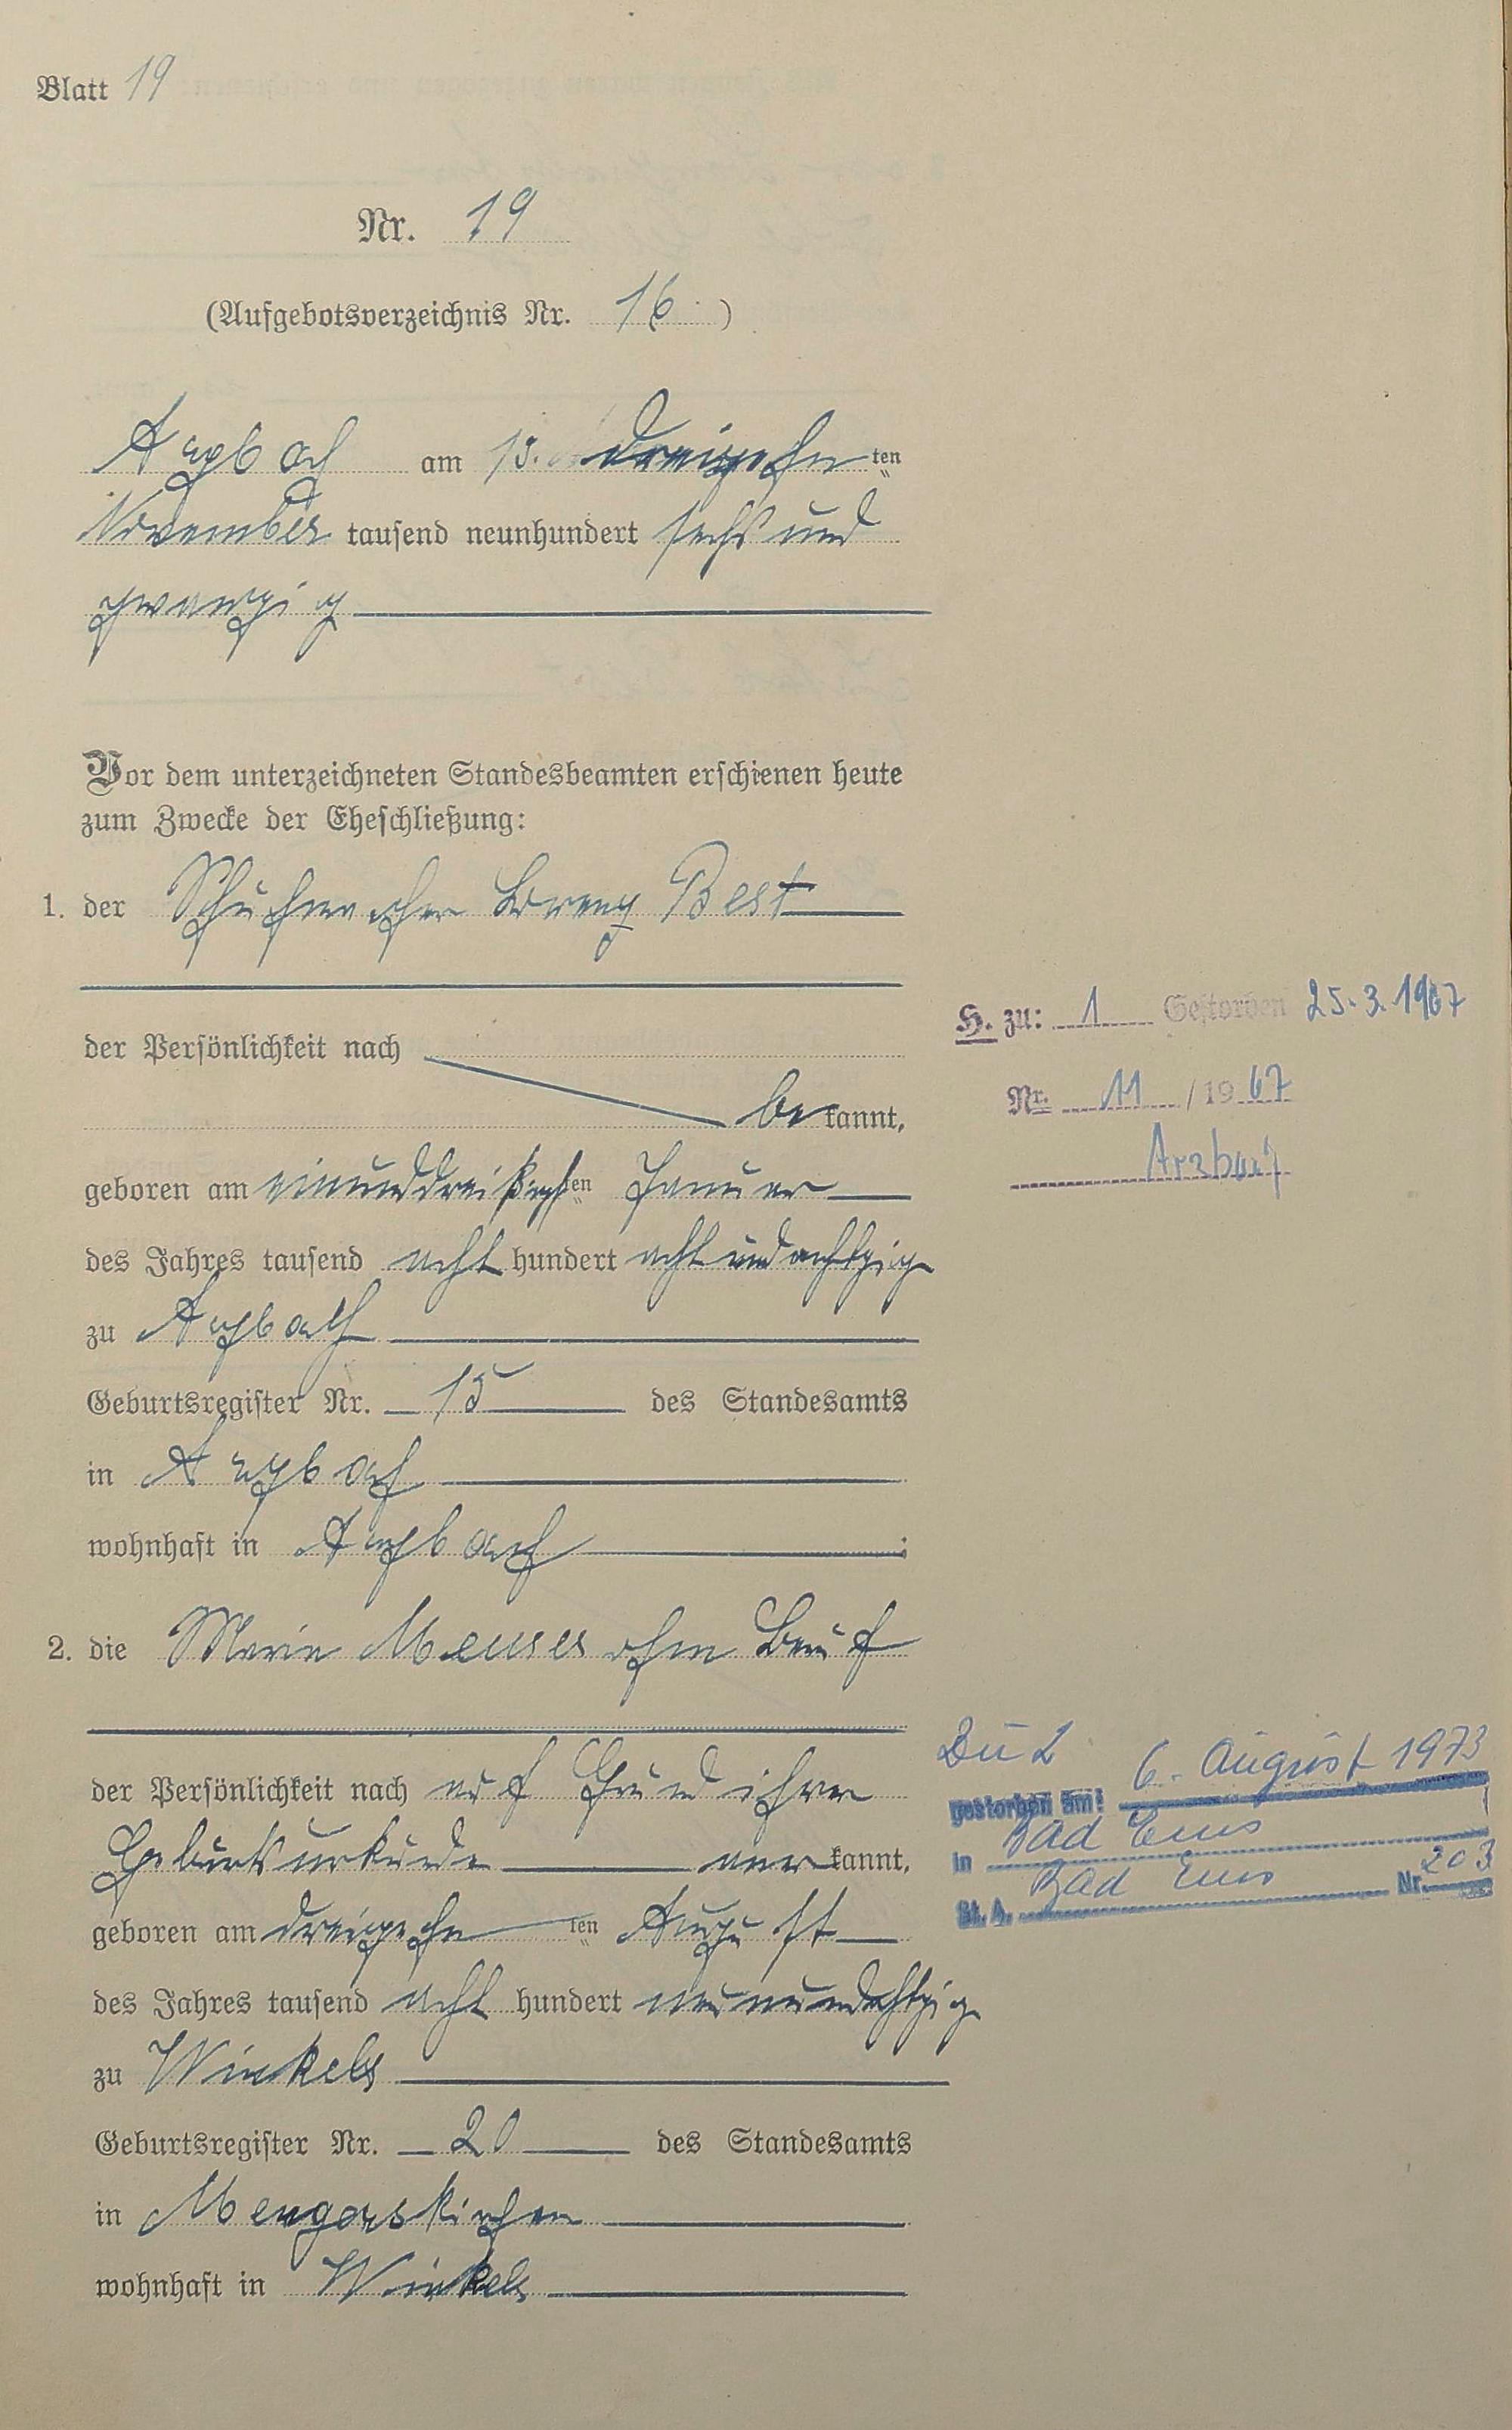 Blatt 19
Nr. 19
(Aufgebotsverzeichnis Nr. 16)
Arzbach am 13. dreizehnten
November tausend neunhundert sechsund
zwanzig
Vor dem unterzeichneten Standesbeamten erschienen heute
zum Zwecke der Eheschließung:
1. der Schuhmacher Lorenz Best
der Persönlichkeit nach
bekannt,
geboren am einunddreißigsten Januar
des Jahres tausend acht hundert achtundachtzig
zu Arzbach
Geburtsregister Nr. 15 des Standesamts
in Arzbach
wohnhaft in Arzbach;
H. zu: 1 Gestorben 25.3.1967
Nr. 11 / 1967
Arzbach
2. die Maria Meuser ohne Beruf
der Persönlichkeit nach auf Grund ihrer
Geburtsurkunde anerkannt,
geboren am dreizehnten August
des Jahres tausend acht hundert neunundachtzig
zu Winkels
Geburtsregister Nr. 20 des Standesamts
in Mengerskirchen
wohnhaft in Winkels
Zu 2
gestorben am: 6. August 1973
in Bad Ems
St. A. Bad Ems Nr. 203